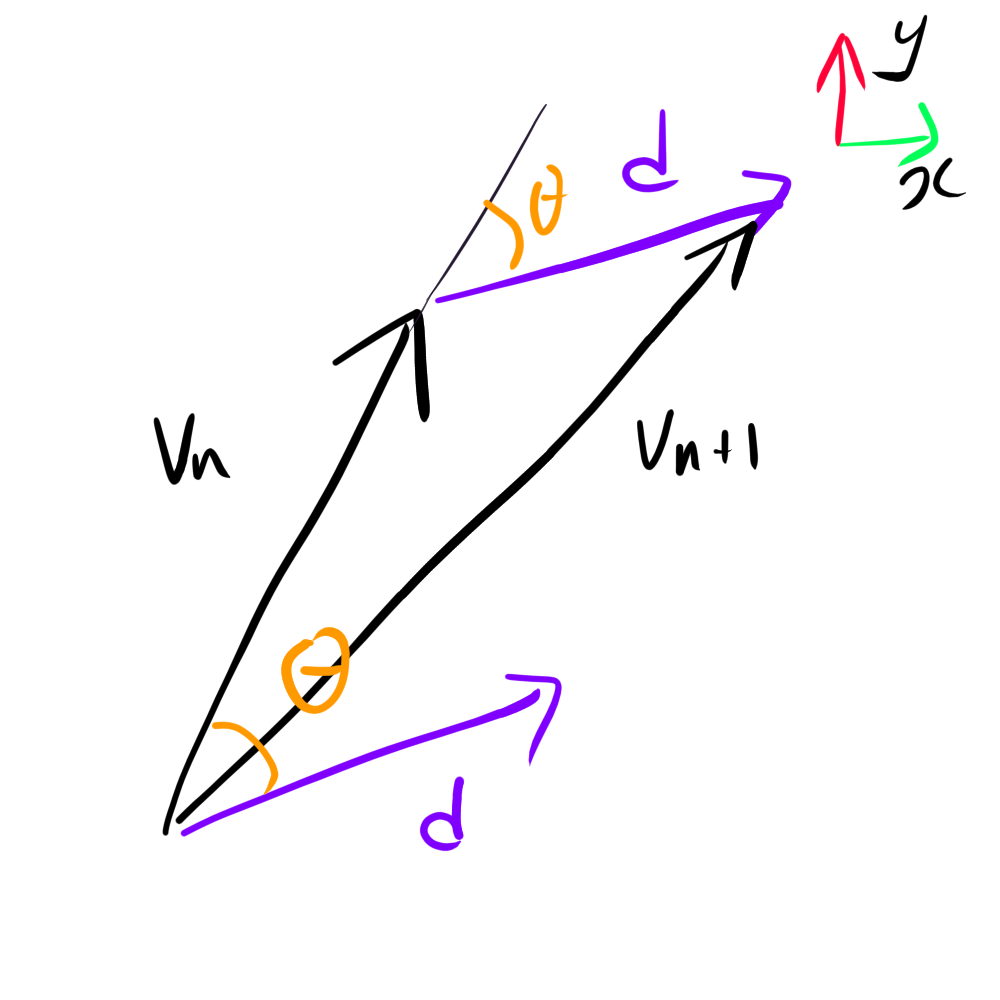 y
x
d
θ
Vn
Vn+1
θ
d